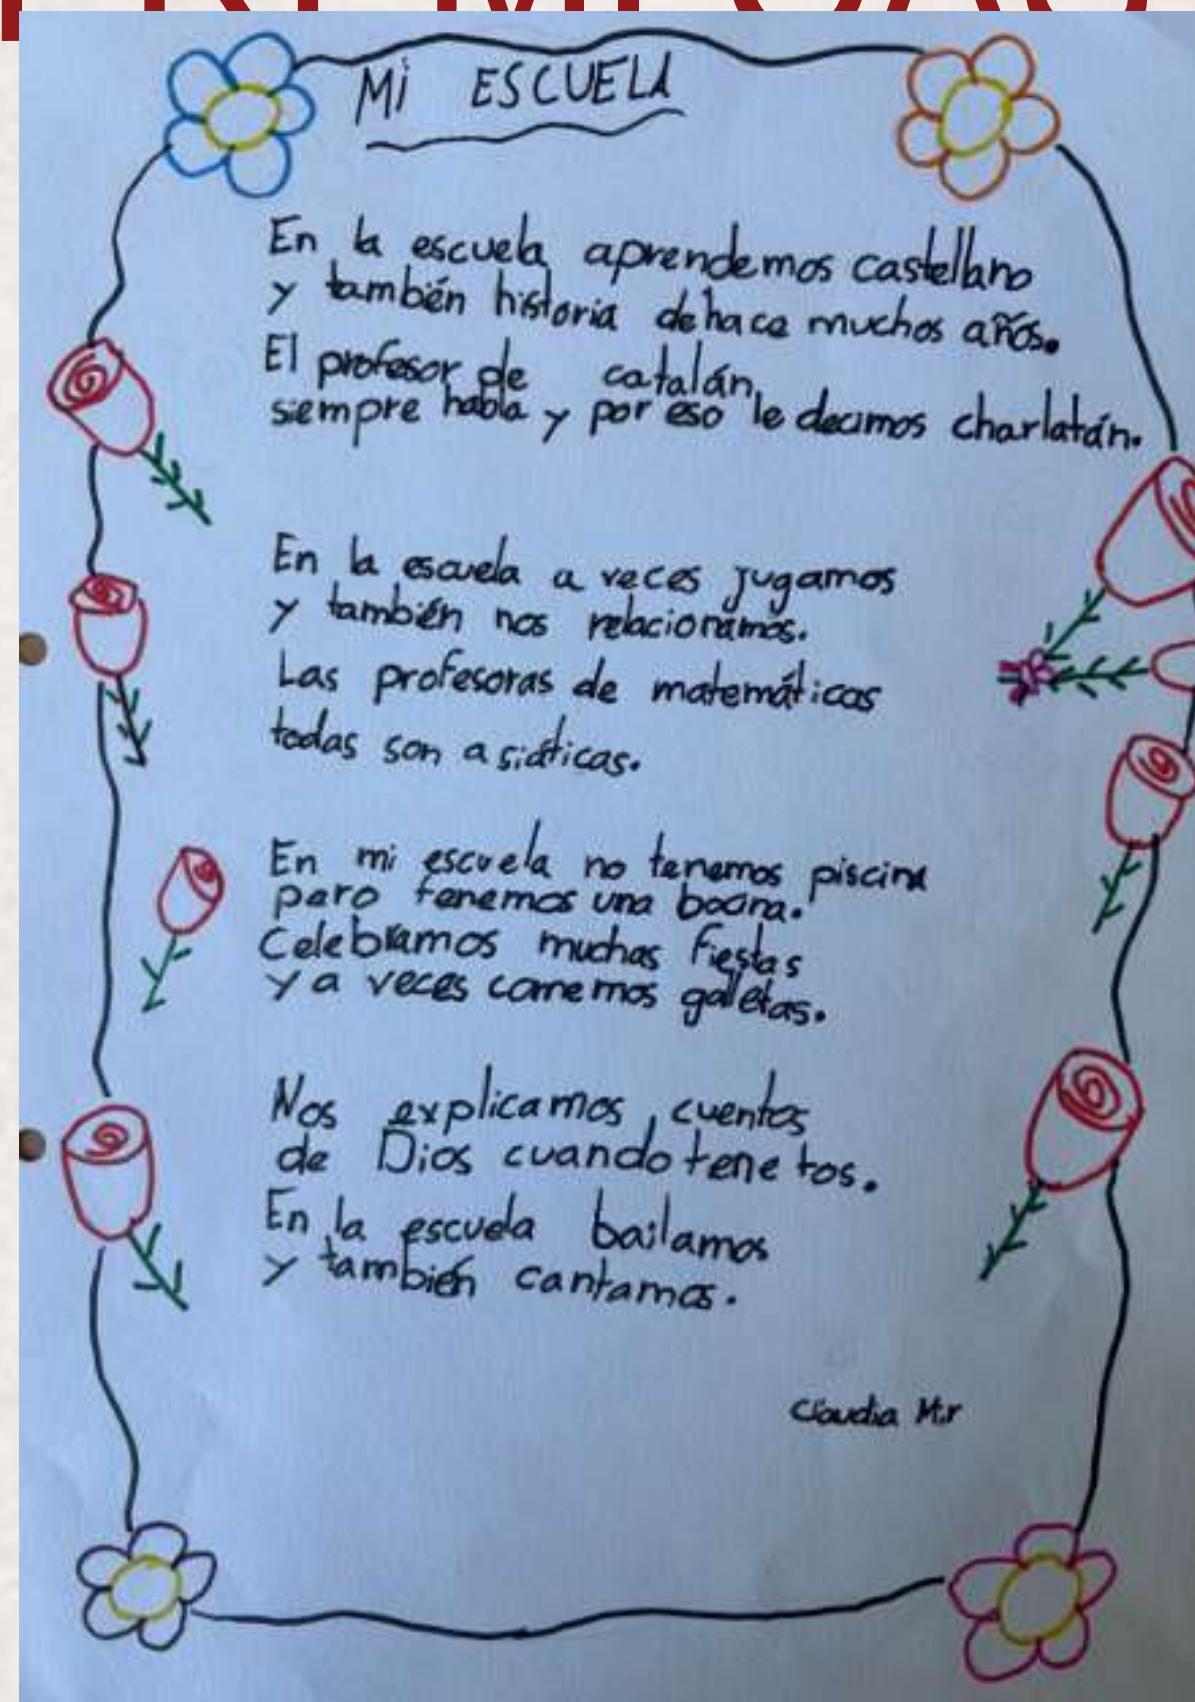 MI ESCUELA
En la escuela aprendemos castellano
y también historia de hace muchos años.
El profesor de catalán,
siempre habla y por eso le decimos charlatán.
En la escuela a veces jugamos
y también nos relacionamos.
Las profesoras de matemáticas
todas son asiáticas.
En mi escuela no tenemos piscina
pero tenemos una bocina.
Celebramos muchas fiestas
y a veces comemos galetas.
Nos explicamos cuentos
de Dios cuando tene tos.
En la escuela bailamos
y también cantamos.
Claudia M.r